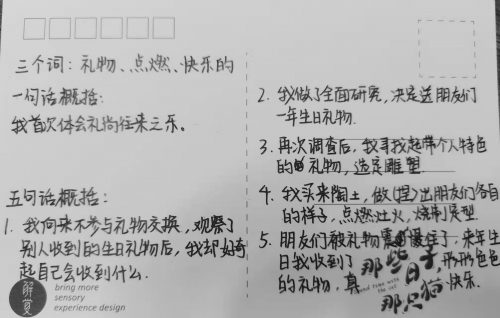 三个词：礼物、点燃、快乐的
一句话概括：
我首次体会礼尚往来之乐。
五句话概括：
1. 我向来不参与礼物交换，观察了
别人收到的生日礼物后，我却好奇
起自己会收到什么.
解蔓
bring more
sensory
experience design
2. 我做了全面研究，决定送朋友们
一年生日礼物.
3. 再次调查后，我寻找起带个人特色
的礼物，选定雕塑.
4. 我买来陶土，做(捏)出朋友们各自
的样子，点燃灶火，烧制定型.
5. 朋友们被礼物震慑住了，来年生
日我收到了 形形色色
的礼物，真 快乐.
那些日子，
and time with
the cat
那只猫